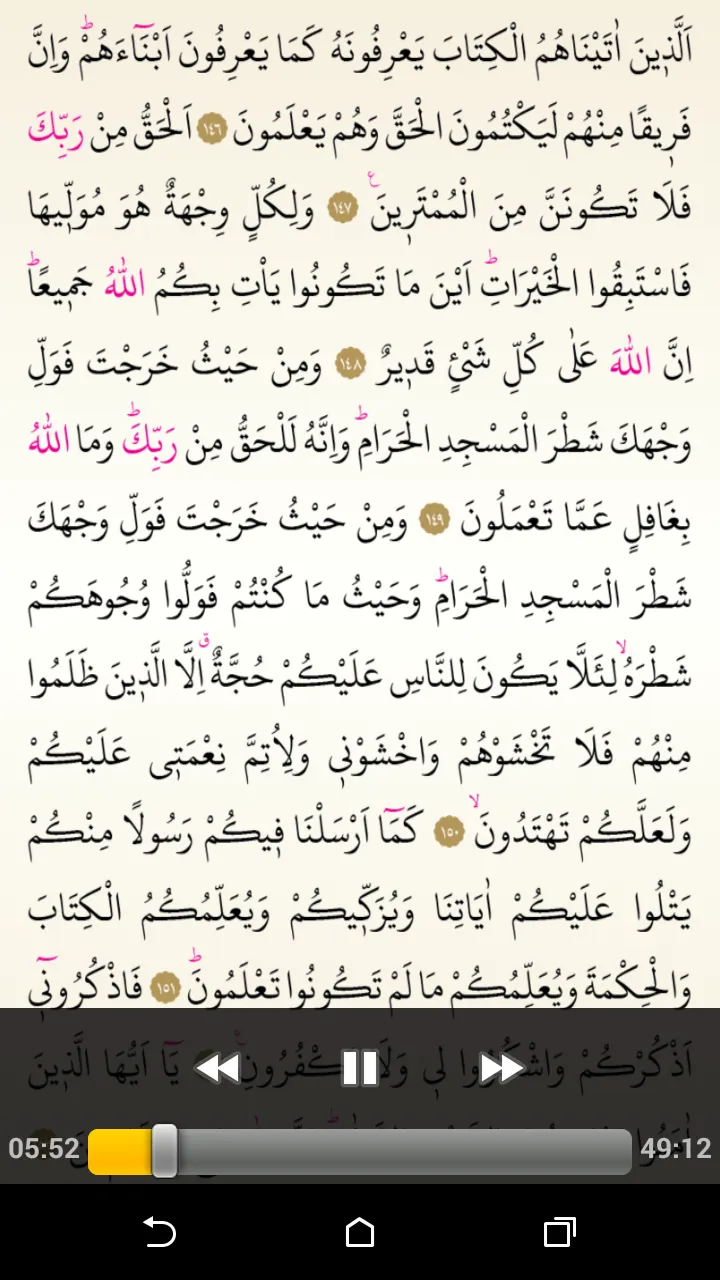 اَلَّذ۪ينَ اٰتَيْنَاهُمُ الْكِتَابَ يَعْرِفُونَهُ كَمَا يَعْرِفُونَ اَبْنَٓاءَهُمْۜ وَاِنَّ
فَر۪يقًا مِنْهُمْ لَيَكْتُمُونَ الْحَقَّ وَهُمْ يَعْلَمُونَ ١٤٦ اَلْحَقُّ مِنْ رَبِّكَ
فَلَا تَكُونَنَّ مِنَ الْمُمْتَر۪ينَ ع ١٤٧ وَلِكُلٍّ وِجْهَةٌ هُوَ مُوَلّ۪يهَا
فَاسْتَبِقُوا الْخَيْرَاتِۜ اَيْنَ مَا تَكُونُوا يَاْتِ بِكُمُ اللّٰهُ جَم۪يعًاۜ
اِنَّ اللّٰهَ عَلٰى كُلِّ شَيْءٍ قَد۪يرٌ ١٤٨ وَمِنْ حَيْثُ خَرَجْتَ فَوَلِّ
وَجْهَكَ شَطْرَ الْمَسْجِدِ الْحَرَامِۜ وَاِنَّهُ لَلْحَقُّ مِنْ رَبِّكَۜ وَمَا اللّٰهُ
بِغَافِلٍ عَمَّا تَعْمَلُونَ ١٤٩ وَمِنْ حَيْثُ خَرَجْتَ فَوَلِّ وَجْهَكَ
شَطْرَ الْمَسْجِدِ الْحَرَامِۜ وَحَيْثُ مَا كُنْتُمْ فَوَلُّوا وُجُوهَكُمْ
شَطْرَهُۙ لِئَلَّا يَكُونَ لِلنَّاسِ عَلَيْكُمْ حُجَّةٌۗ اِلَّا الَّذ۪ينَ ظَلَمُوا
مِنْهُمْ فَلَا تَخْشَوْهُمْ وَاخْشَوْن۪ي وَلِاُتِمَّ نِعْمَت۪ي عَلَيْكُمْ
وَلَعَلَّكُمْ تَهْتَدُونَۙ ١٥٠ كَمَٓا اَرْسَلْنَا ف۪يكُمْ رَسُولًا مِنْكُمْ
يَتْلُوا عَلَيْكُمْ اٰيَاتِنَا وَيُزَكّ۪يكُمْ وَيُعَلِّمُكُمُ الْكِتَابَ
وَالْحِكْمَةَ وَيُعَلِّمُكُمْ مَا لَمْ تَكُونُوا تَعْلَمُونَۜ ١٥١ فَاذْكُرُون۪ٓي
اَذْكُرْكُمْ وَاشْكُرُوا ل۪ي وَلَا تَكْفُرُونِ يَٓا اَيُّهَا الَّذ۪ينَ
05:52 49:12